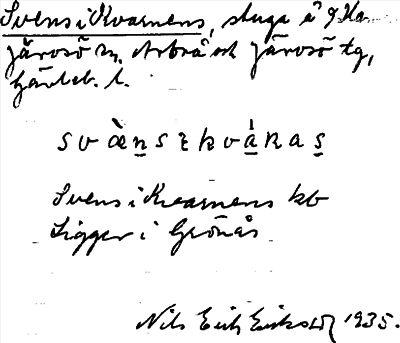 Svens i Kvarnens, stuga å g. Ha.
Järvsö sn, Arbrå och Järvsö tg,
Gävleb. l.
s v æ̀ n s ɪ k v á ʀ n a s
Svens i Kvarnens kb
Ligger i Grönås
Nils Erik Eriksson 1935.